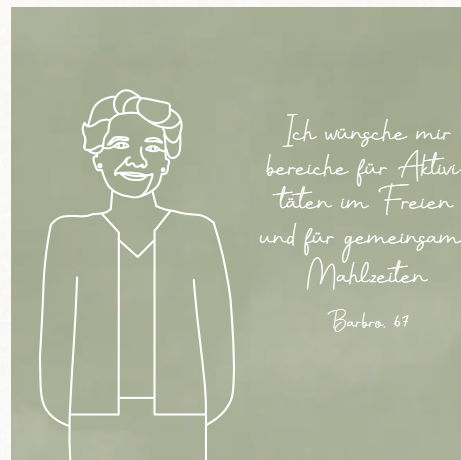 Ich wünsche mir
bereiche für Aktivi-
täten im Freien
und für gemeinsam
Mahlzeiten
Barbro, 67